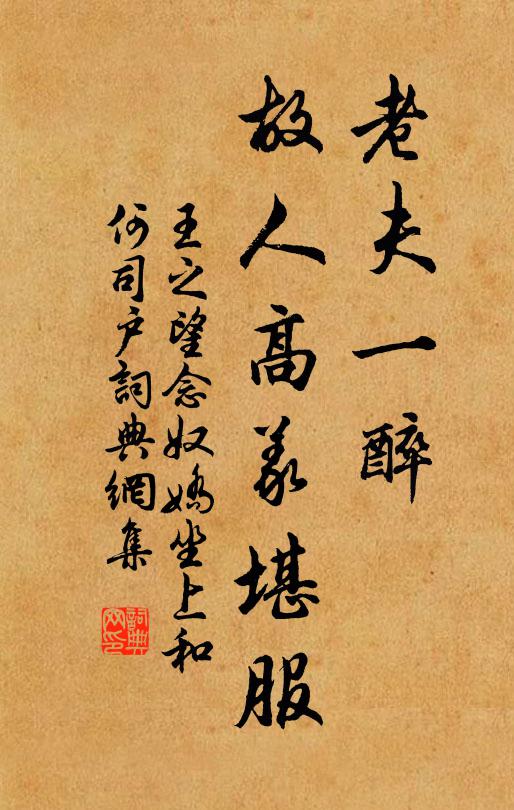 老夫一醉
故人高義堪服
王之望念奴嬌坐上和
何司戶詞典網集
詞典
网印